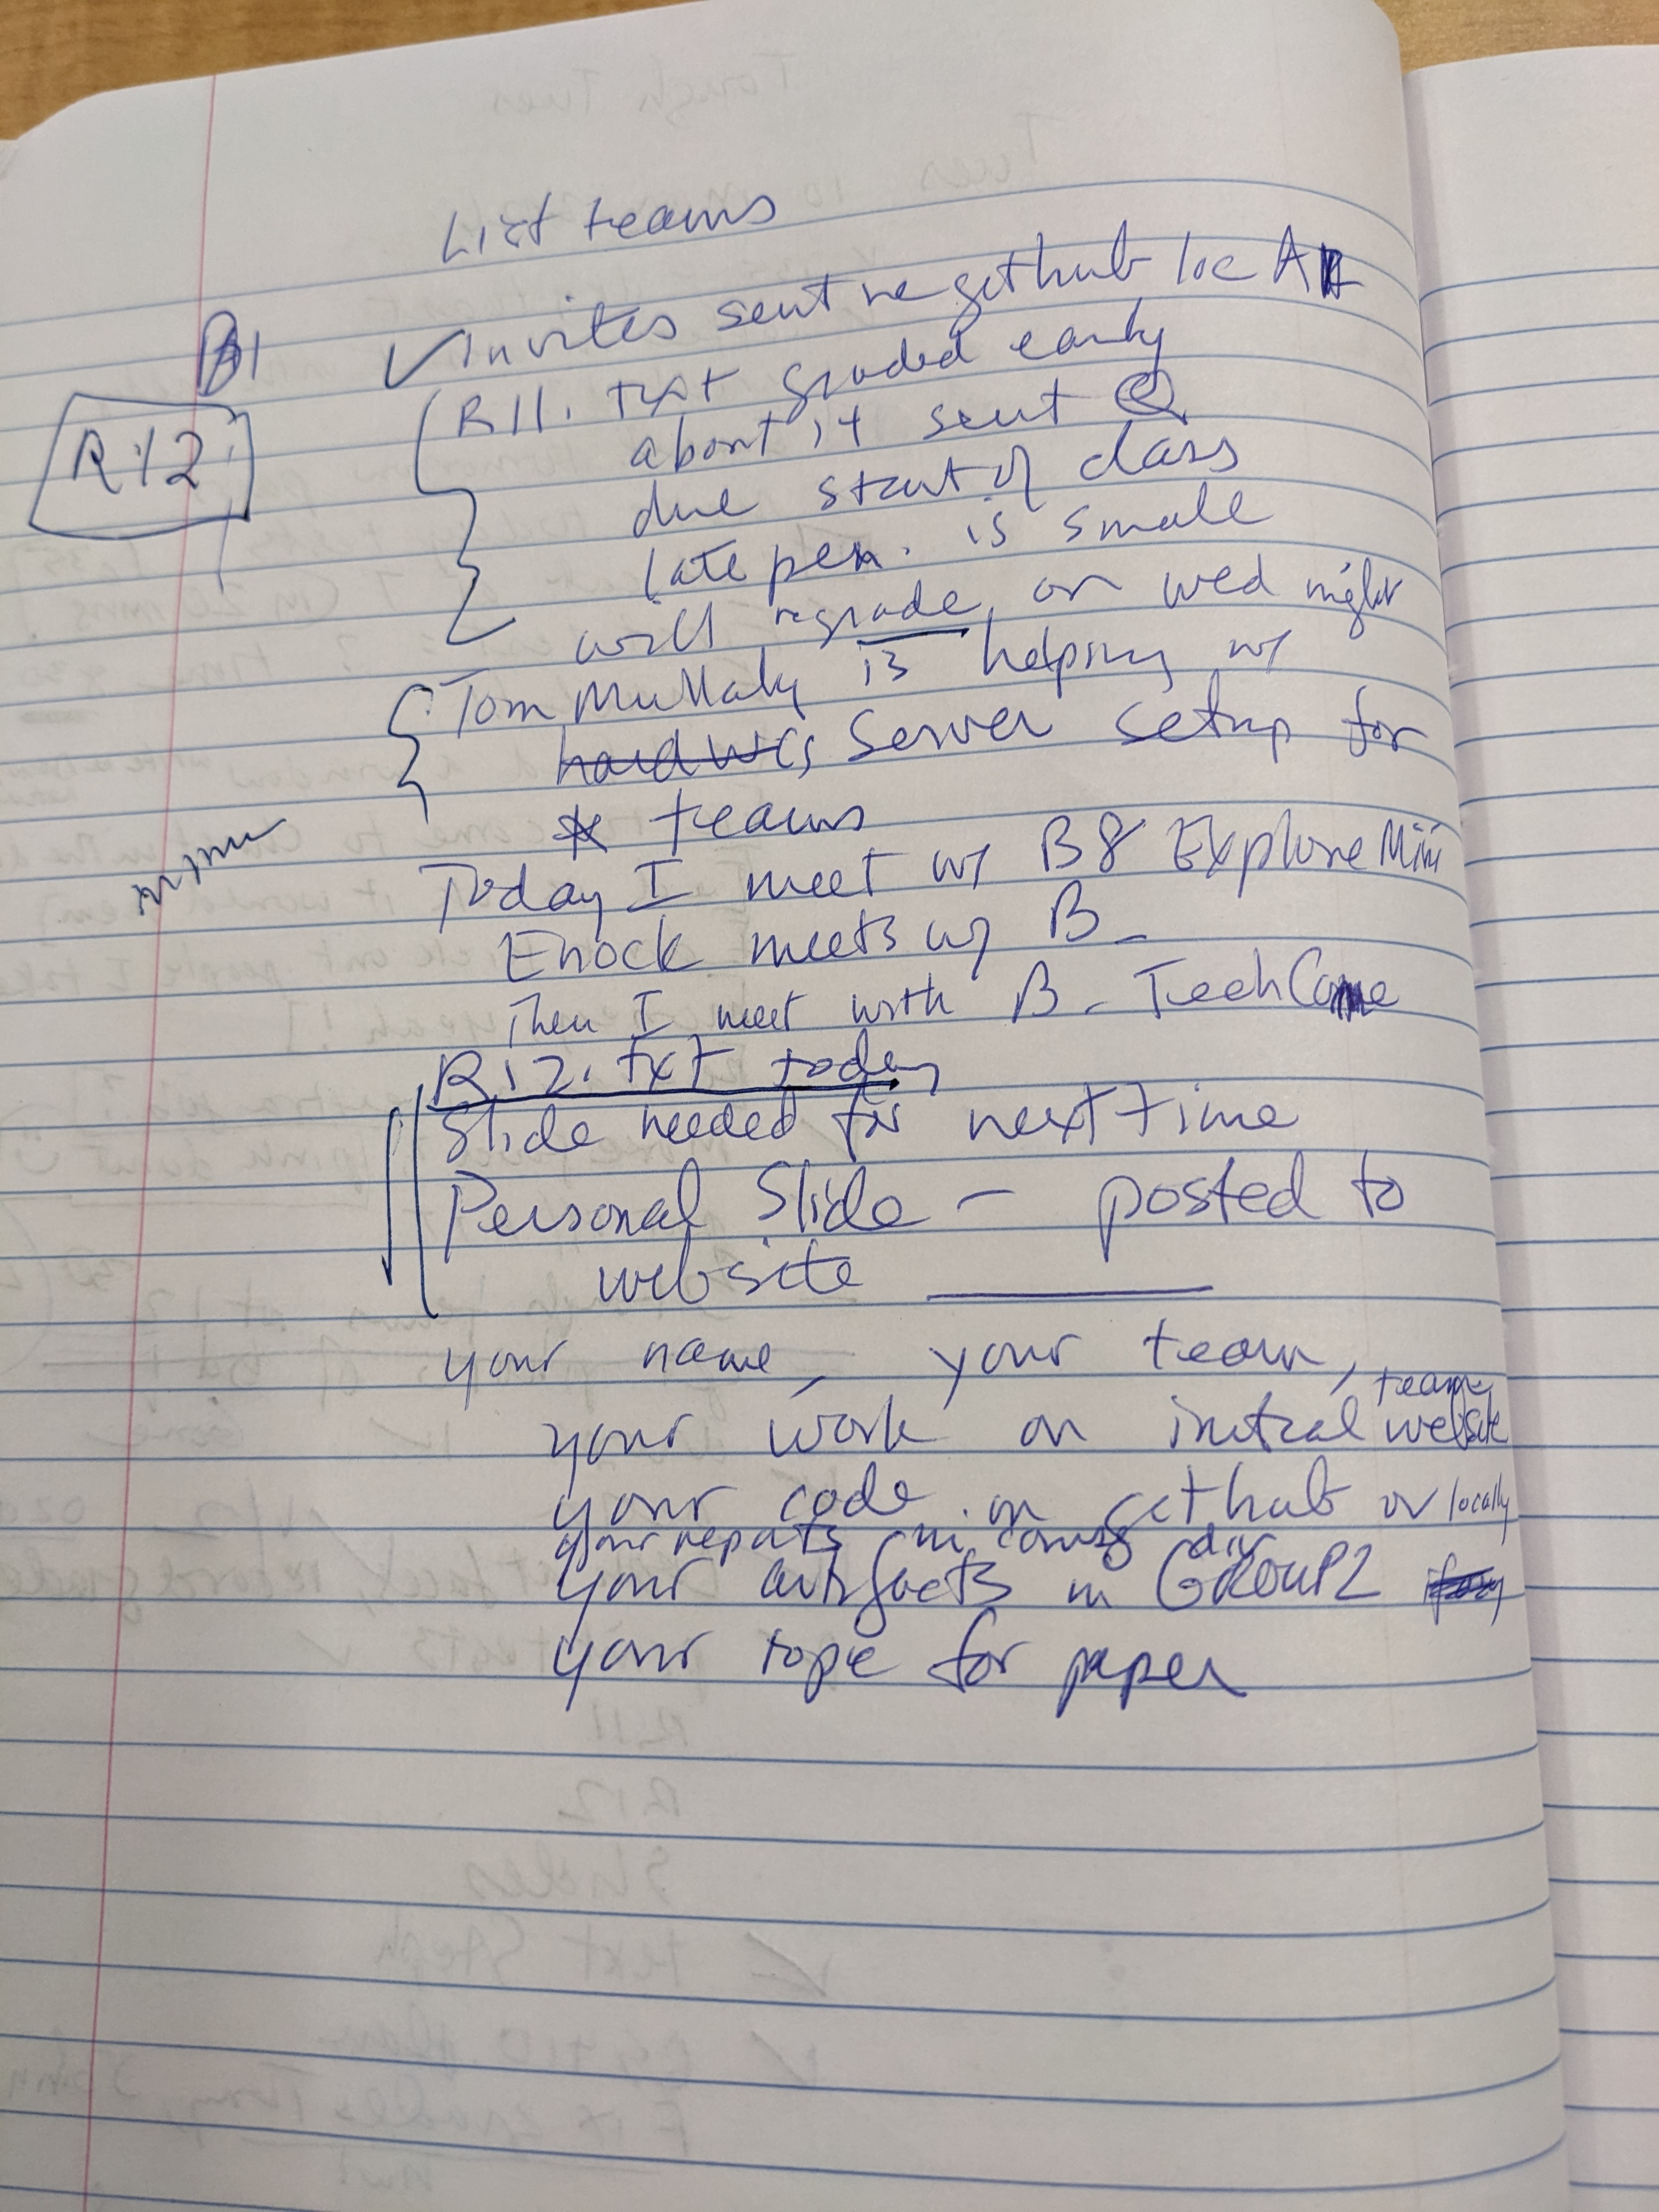 List teams
B1
✓ Invites sent re github loc
R12
R11.txt graded early
about it sent
due start of class
late pen. is small
will regrade on wed night
Tom Mullaly is helping w/
Server setup for
* teams
Today I meet w/ B8 Explore Mini
Enock meets w/ B_
Then I meet with B_ Tech
R12.txt today
Slide needed for next time
Personal Slide – posted to
website ______
your name, your team,
team
your work on initial website
your code in github or locally
your reports in dir
your artifacts in GROUP2
your topic for paper